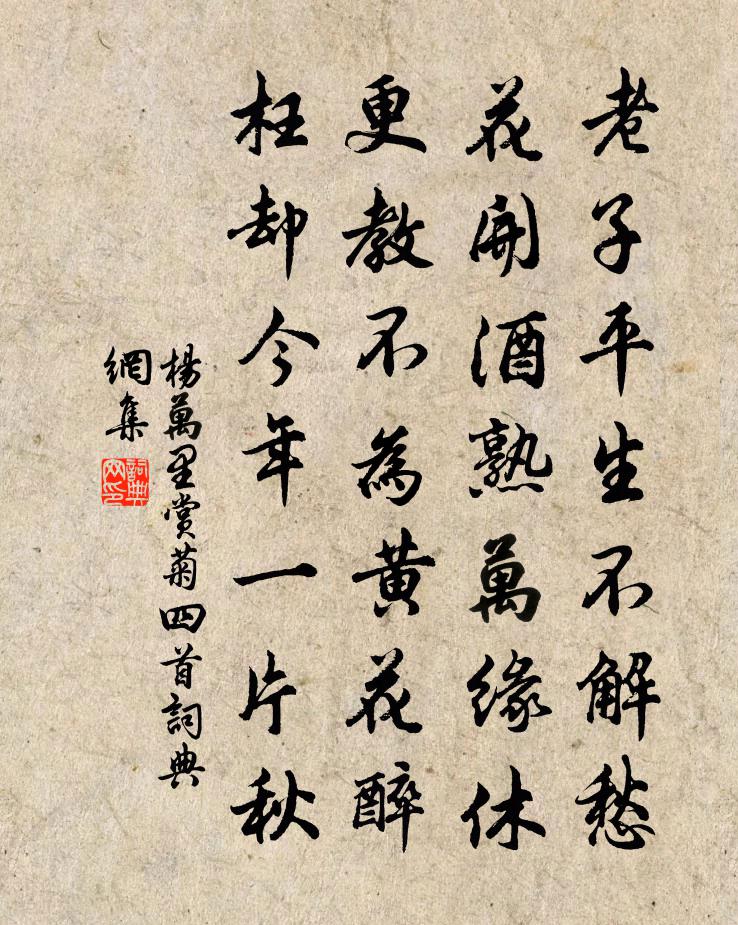 老子平生不解愁
花開酒熟萬緣休
更教不為黃花醉
枉却今年一片秋
楊萬里賞菊四首詞典
網集
詞典
网印